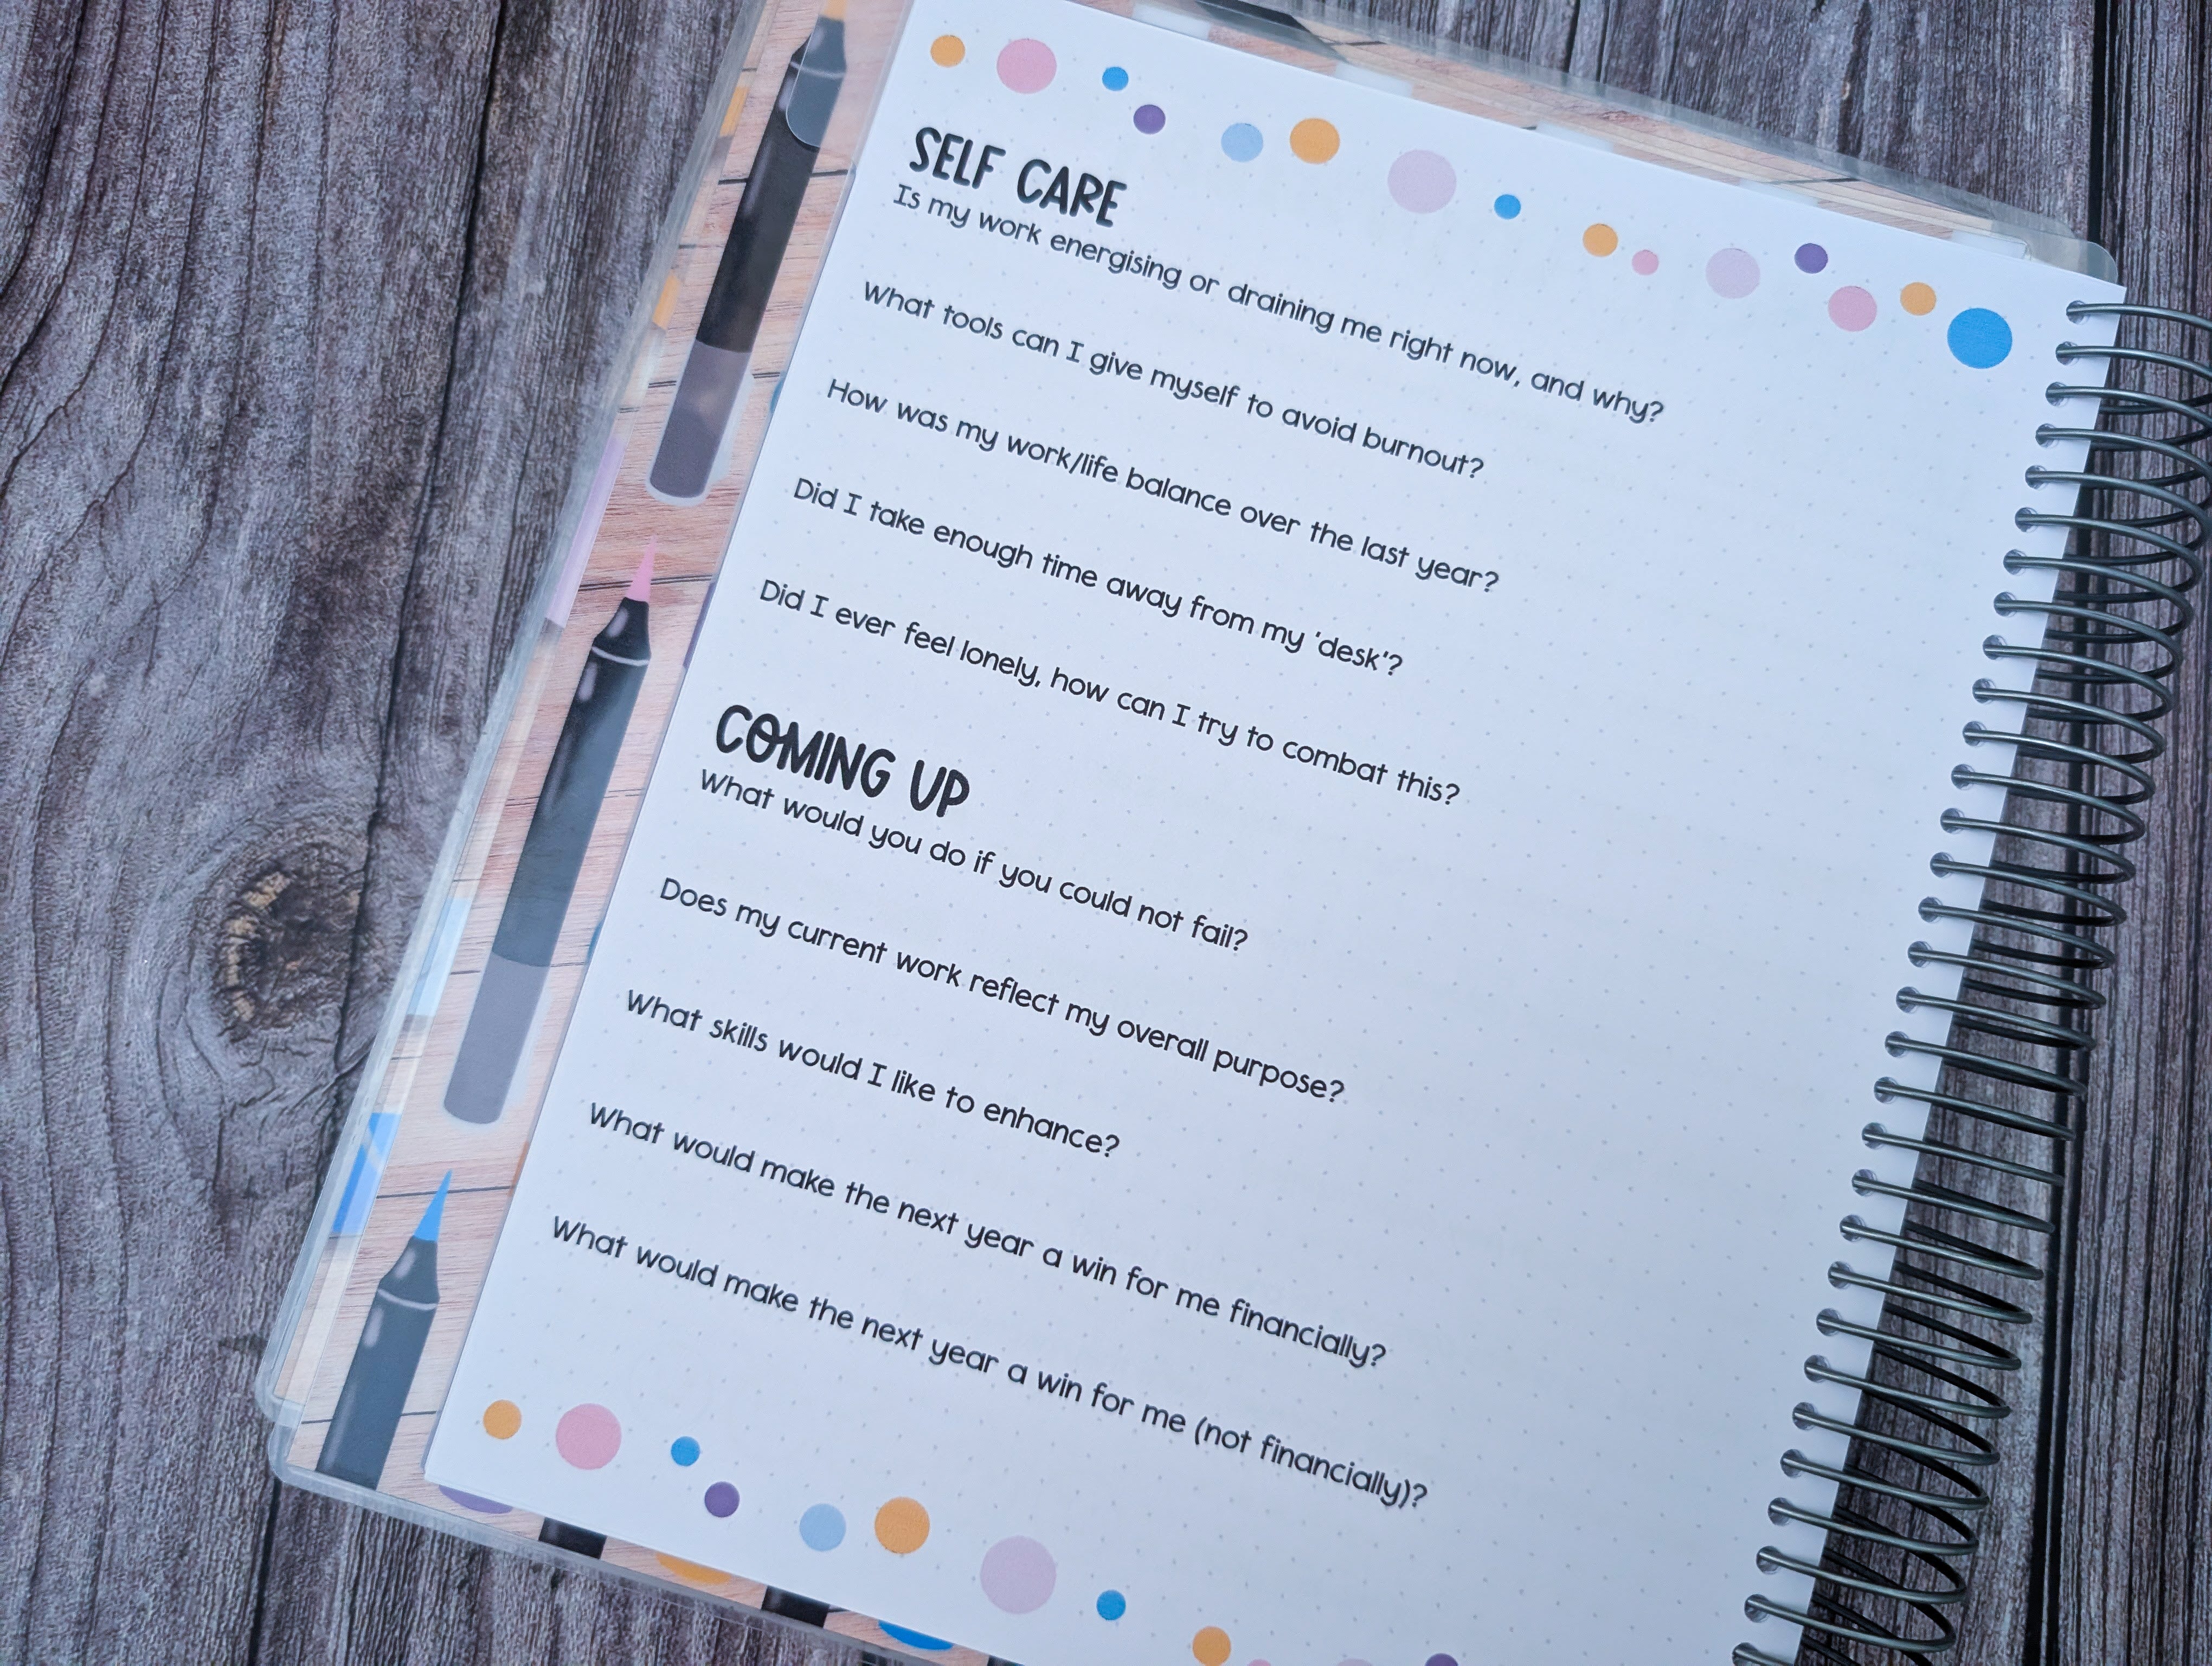 SELF CARE
Is my work energising or draining me right now, and why?
What tools can I give myself to avoid burnout?
How was my work/life balance over the last year?
Did I take enough time away from my 'desk'?
Did I ever feel lonely, how can I try to combat this?
COMING UP
What would you do if you could not fail?
Does my current work reflect my overall purpose?
What skills would I like to enhance?
What would make the next year a win for me financially?
What would make the next year a win for me (not financially)?